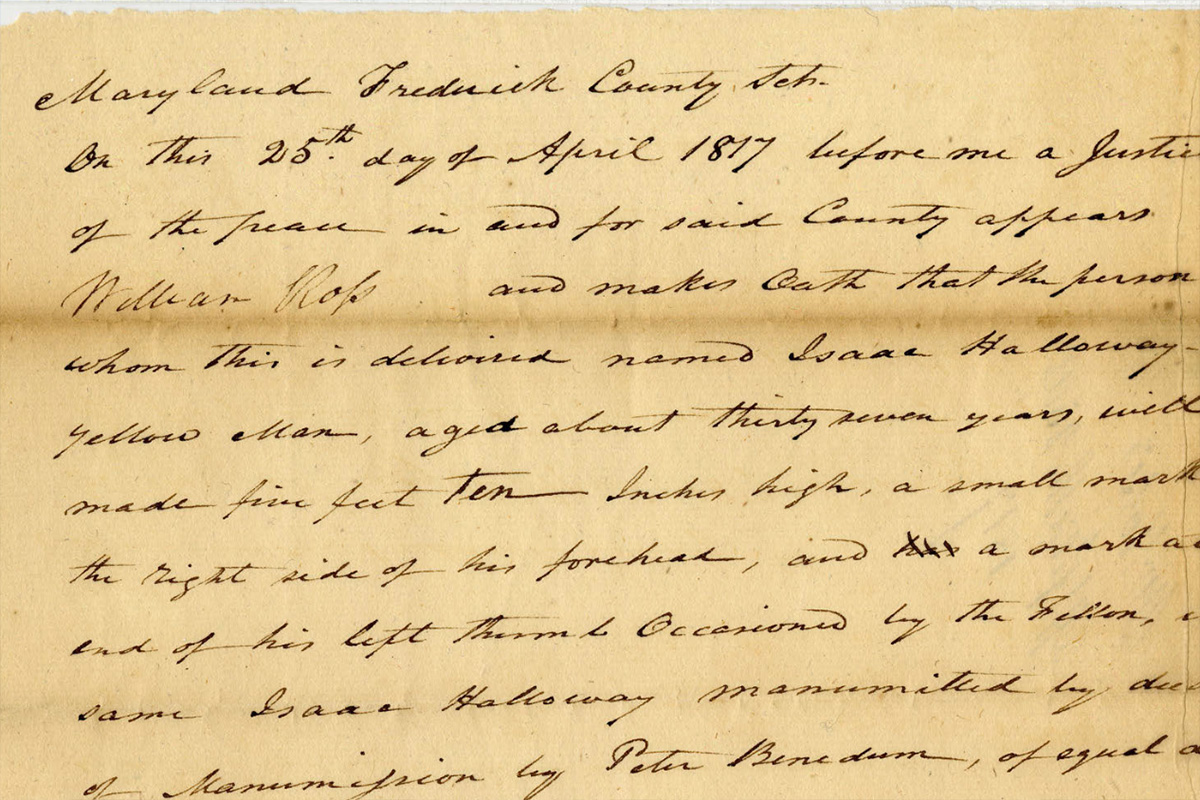 Maryland Frederick County Sct.
On this 25th. day of April 1817 before me a Justic
of the peace in and for said County appears
William Ross and makes Oath that the person
whom this is delivired named Isaac Halloway-
yellow Man, aged about thirty seven years, well
made five feet Ten Inches high, a small mark
the right side of his forehead, and has a mark a
end of his left thumb Occasioned by the Fellon,
same Isaac Halloway manumitted by dee
of Manumission by Peter Benedum, of equal a